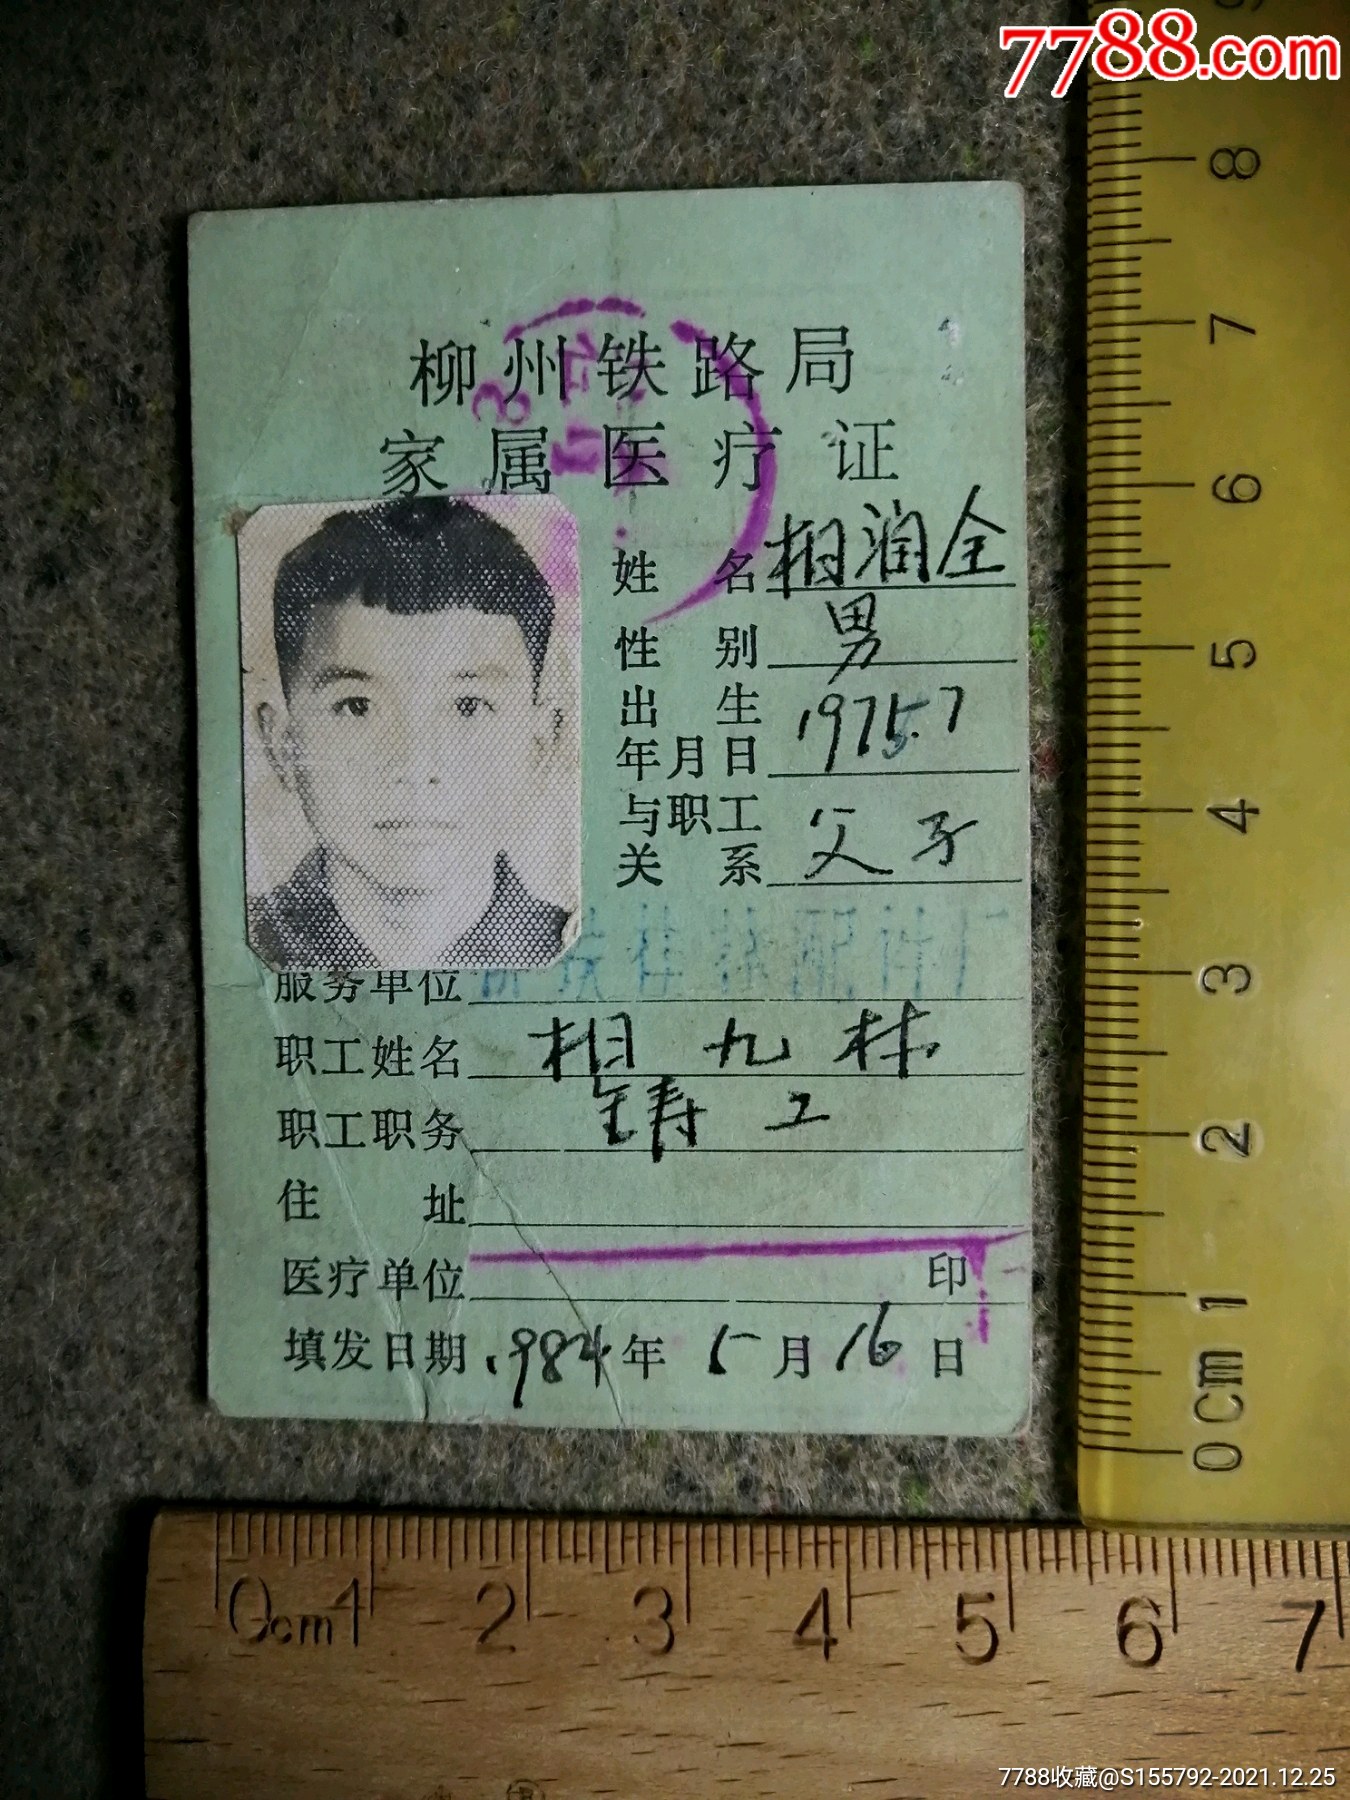 7788.com
柳州铁路局
家属医疗证
姓名 相润全
性别 男
出生年月日 1975.7
与职工关系 父子
服务单位
职工姓名 相九林
职工职务 铸工
住址
医疗单位 印
填发日期 1984年5月16日
8
7
6
5
4
3
2
1
0cm
0cm 1 2 3 4 5 6 7
7788收藏@S155792-2021.12.25